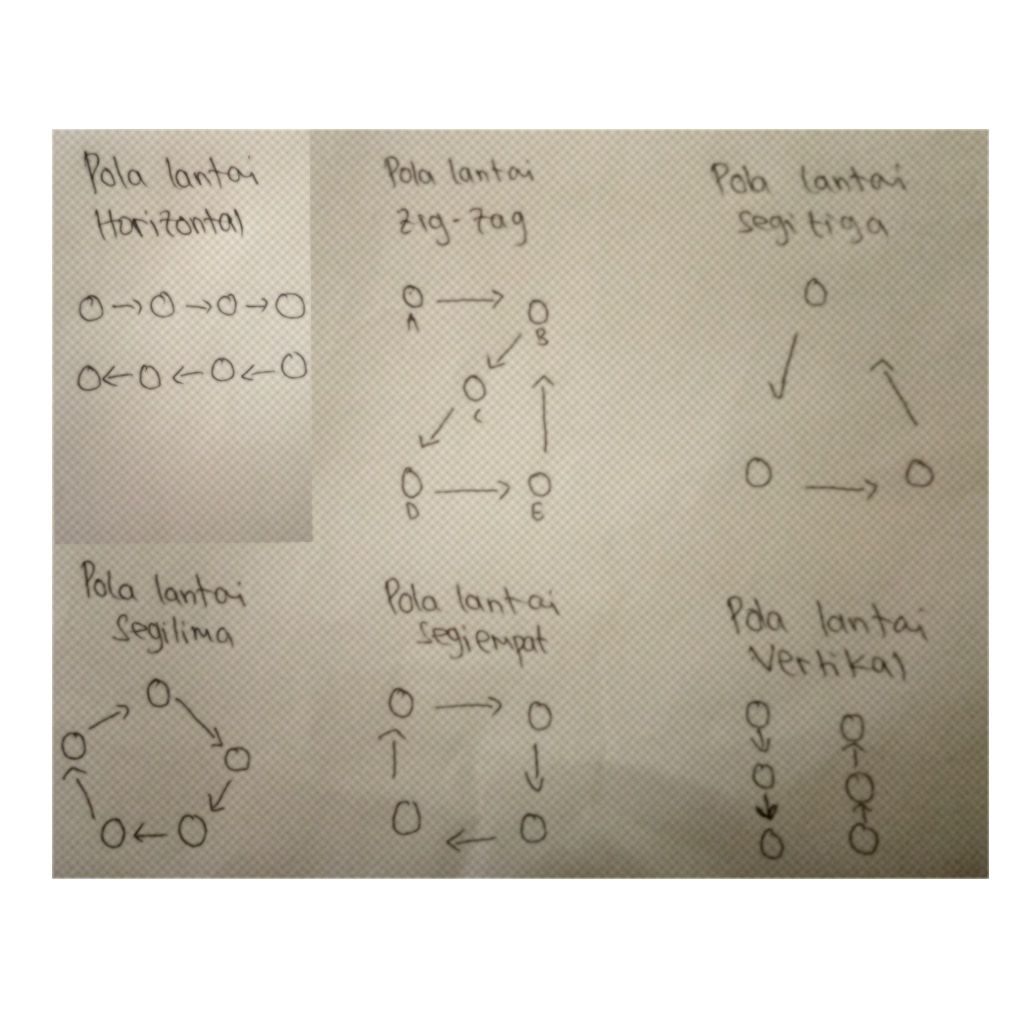 Pola lantai
Horizontal
Pola lantai
zig-zag
A
B
C
D
E
Pola lantai
segitiga
Pola lantai
Segilima
Pola lantai
Segiempat
Pola lantai
Vertikal